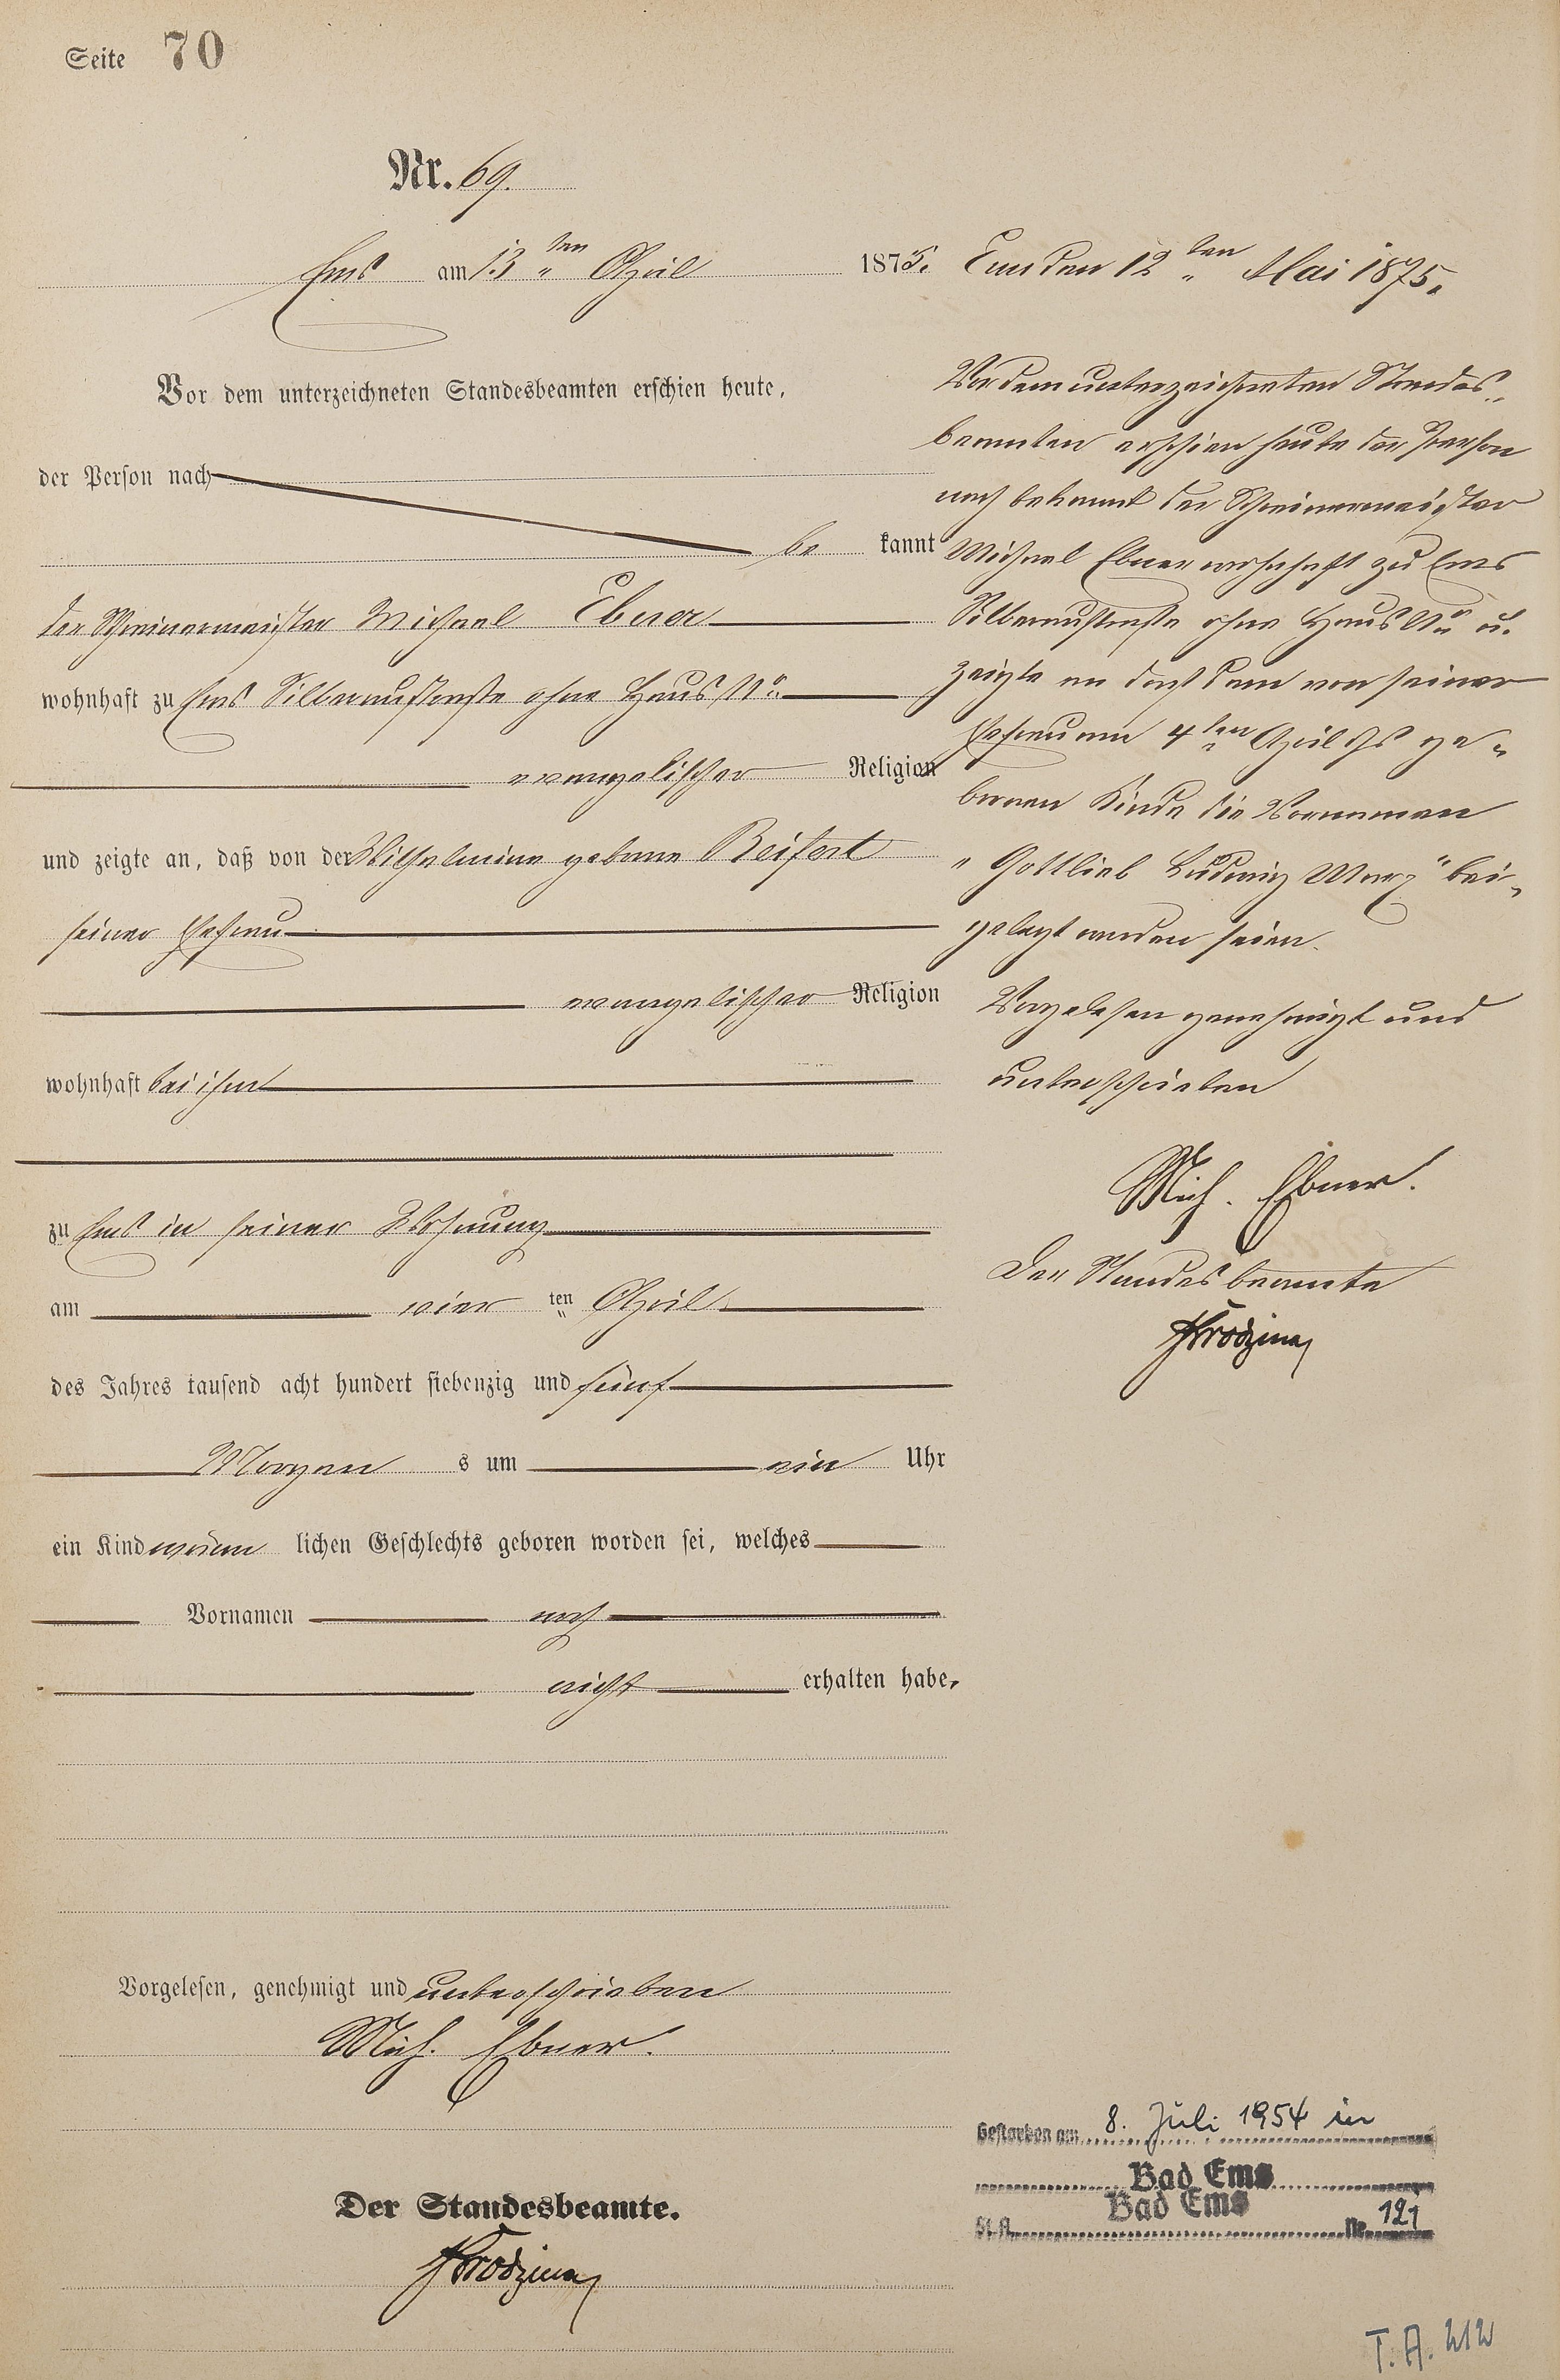 Seite 70
Nr. 69.
Ems am 13ten April 1875.
Vor dem unterzeichneten Standesbeamten erschien heute,
der Person nach
be kannt
der Schreinermeister Michael Ebner
wohnhaft zu Ems Silberaustraße ohne Haus No.
evangelischer Religion
und zeigte an, daß von der Wilhelmine geborne Reifert
seiner Ehefrau
evangelischer Religion
wohnhaft bei ihm
zu Ems in seiner Wohnung
am vier ten April
des Jahres tausend acht hundert siebenzig und fünf
Morgen s um ein Uhr
ein Kind männ lichen Geschlechts geboren worden sei, welches
Vornamen noch
nicht erhalten habe.
Vorgelesen, genehmigt und unterschrieben
Mich. Ebner.
Der Standesbeamte.
Ems den 12ten Mai 1875.
Vor dem unterzeichneten Standes-
beamten erschien heute der Person
nach bekannt der Schreinermeister
Michael Ebner wohnhaft zu Ems
Silberaustraße ohne Haus No u.
zeigte an daß dem von seiner
Ehefrau am 4ten April ds ge-
bornen Kinde die Vornamen
"Gottlieb Ludwig Max" bei-
gelegt worden seien.
Vorgelesen genehmigt und
unterschrieben
Mich. Ebner.
Der Standesbeamte
Gestorben am 8. Juli 1954 in
Bad Ems
Bad Ems
St. A. Nr. 121
T. A. 212